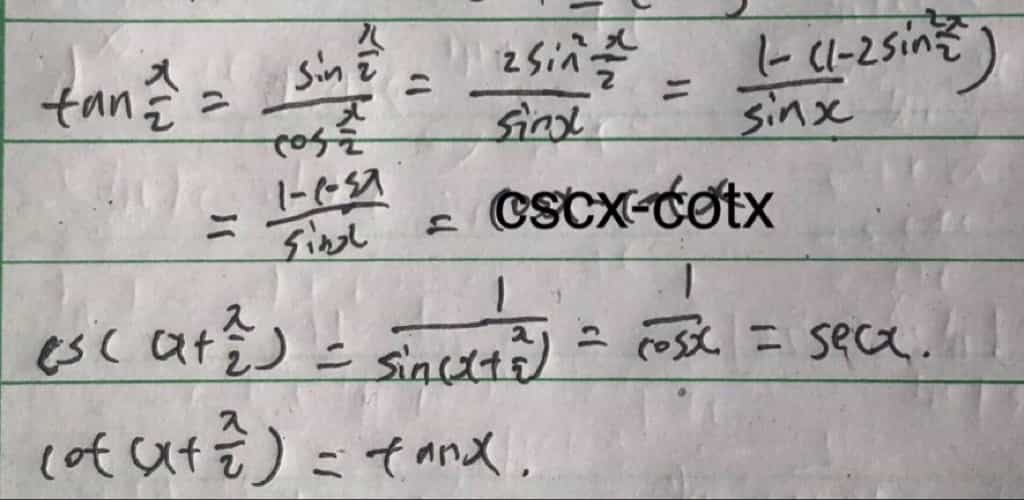 tan x/2 = sin x/2 / cos x/2 = 2sin² x/2 / sinx = 1-(1-2sin² x/2) / sinx
= 1-cosx / sinx = cscx-cotx
csc(x+π/2) = 1 / sin(x+π/2) = 1 / cosx = secx.
cot(x+π/2) = tanx.